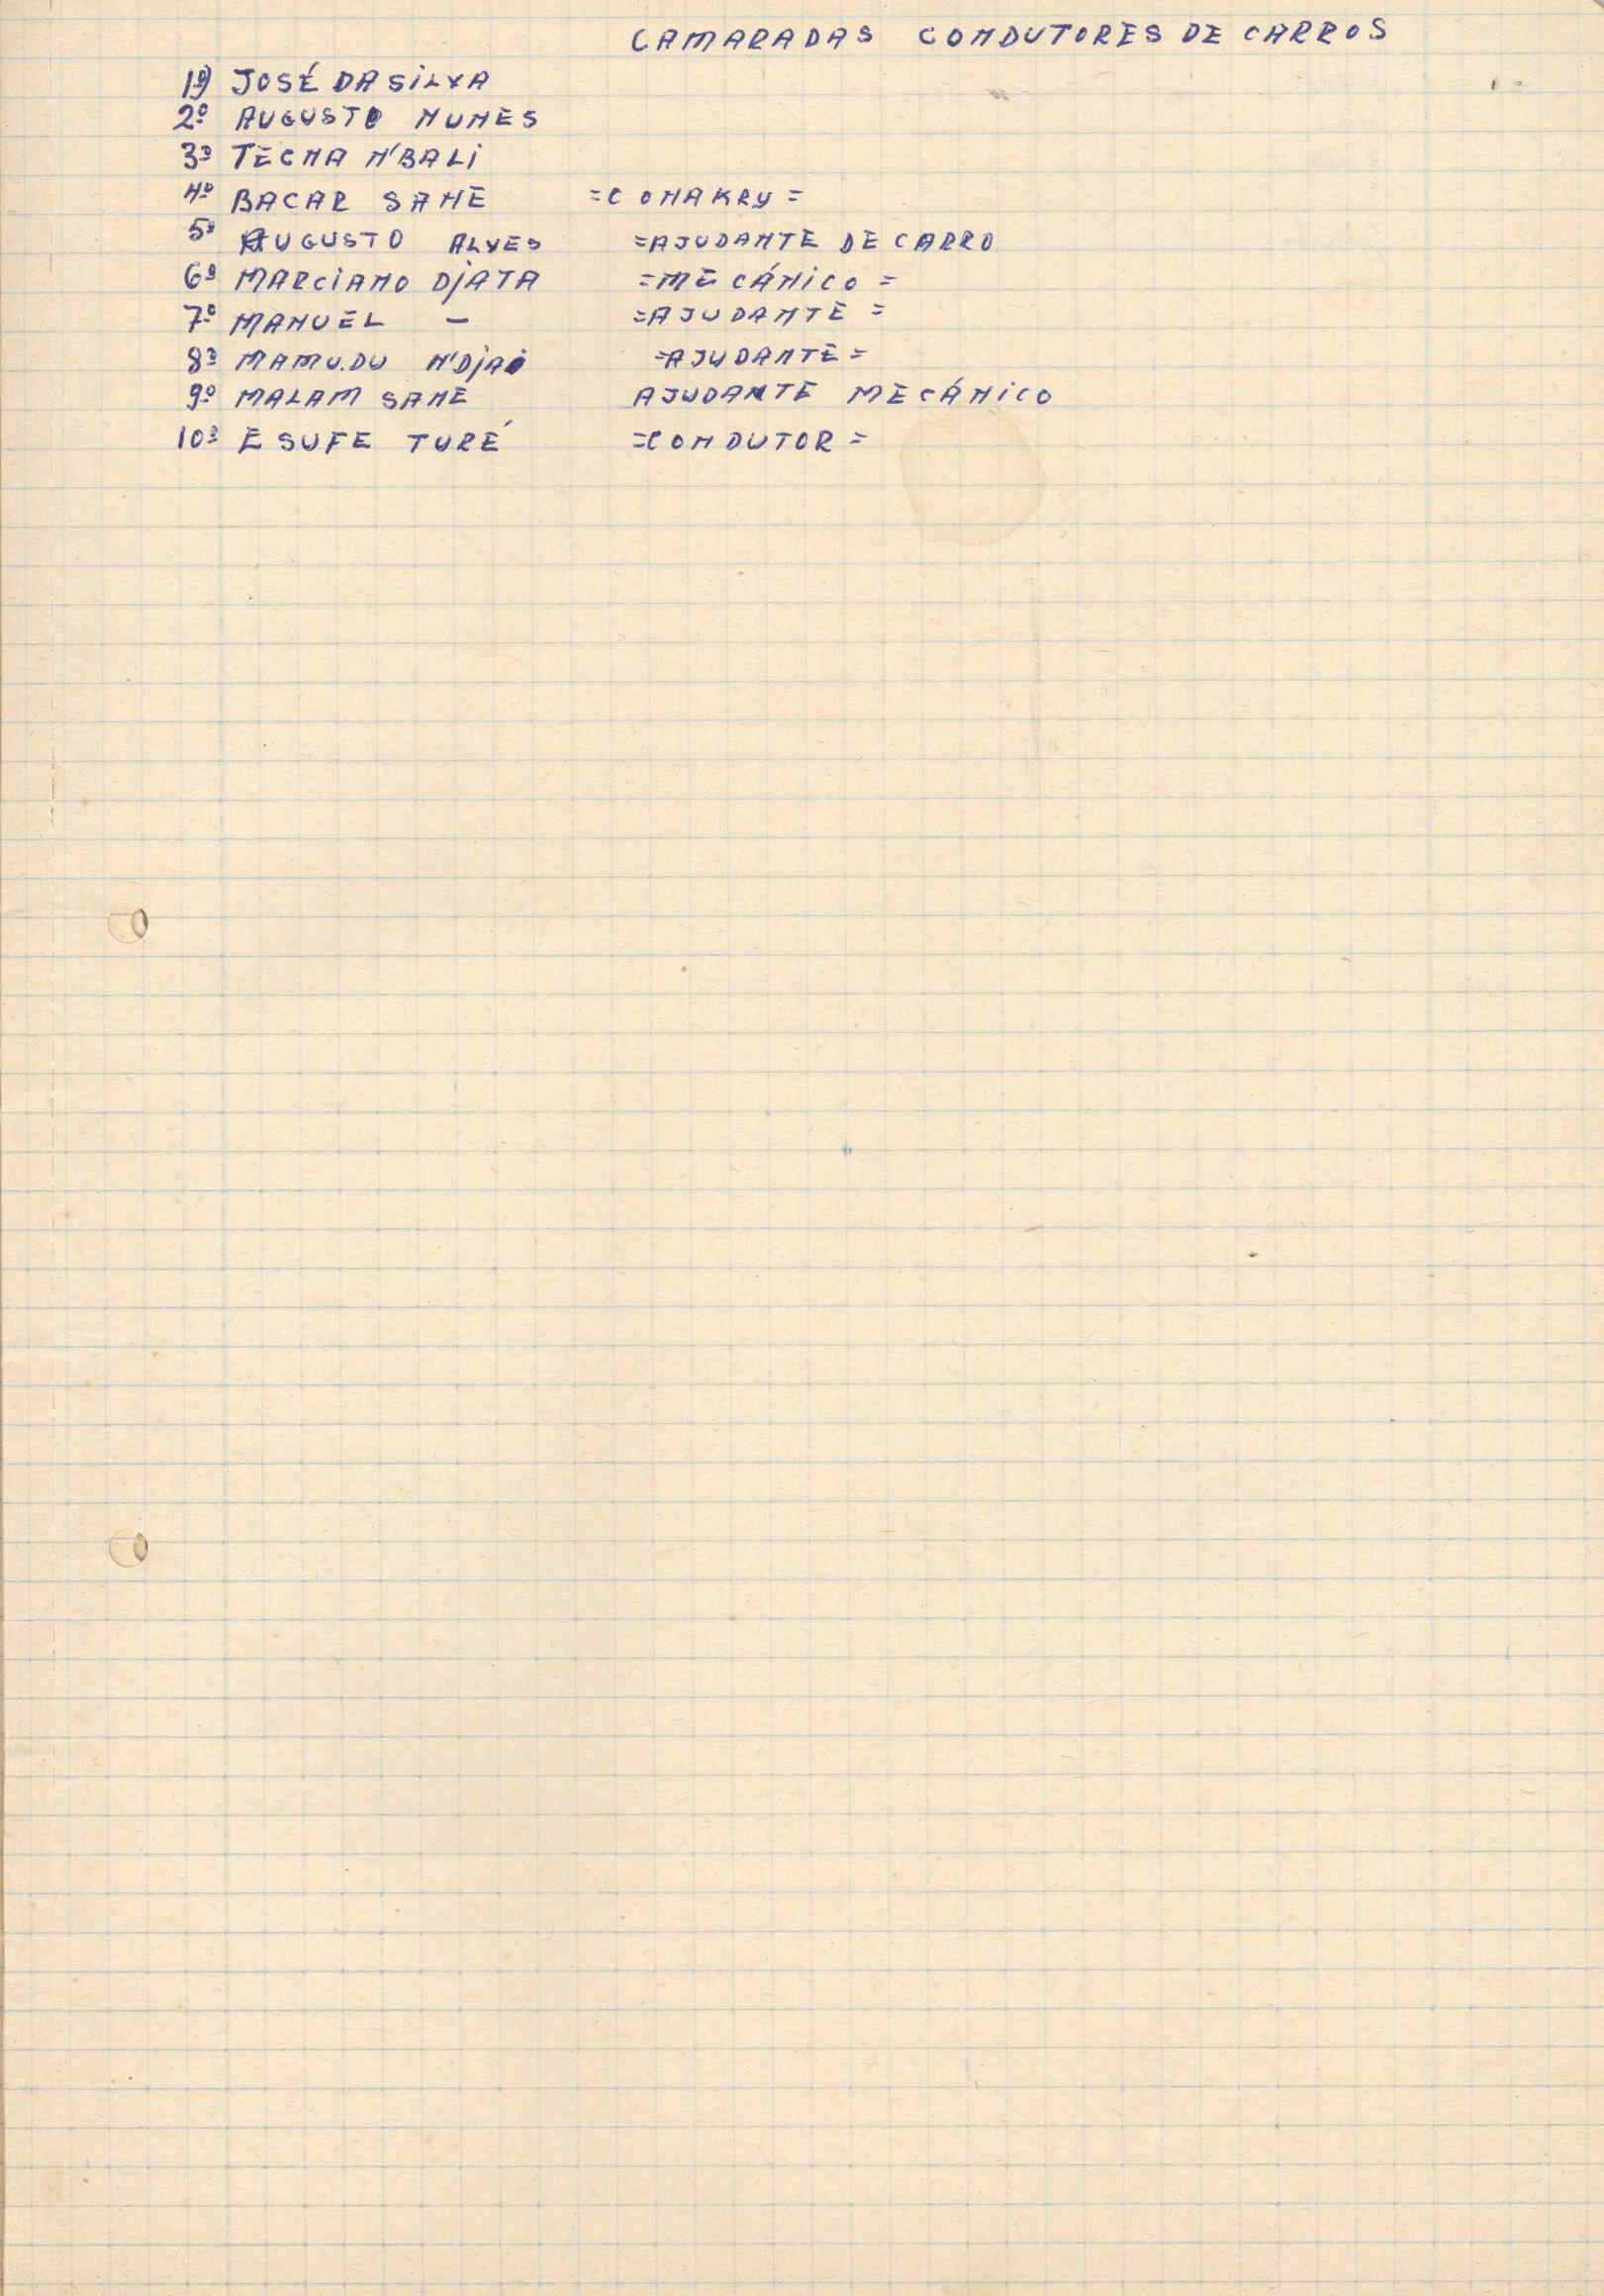 CAMARADAS CONDUTORES DE CARROS
1º) JOSÉ DA SILVA
2º AUGUSTO NUNES
3º TECNA N'BALI
4º BACAR SANE =CONAKRY=
5º AUGUSTO ALVES =AJUDANTE DE CARRO
6º MARCIANO DJATA =MECÁNICO=
7º MANUEL — =AJUDANTE=
8º MAMUDU N'DJAI =AJUDANTE=
9º MALAM SANE AJUDANTE MECÁNICO
10º ESUFE TURÉ =CONDUTOR=